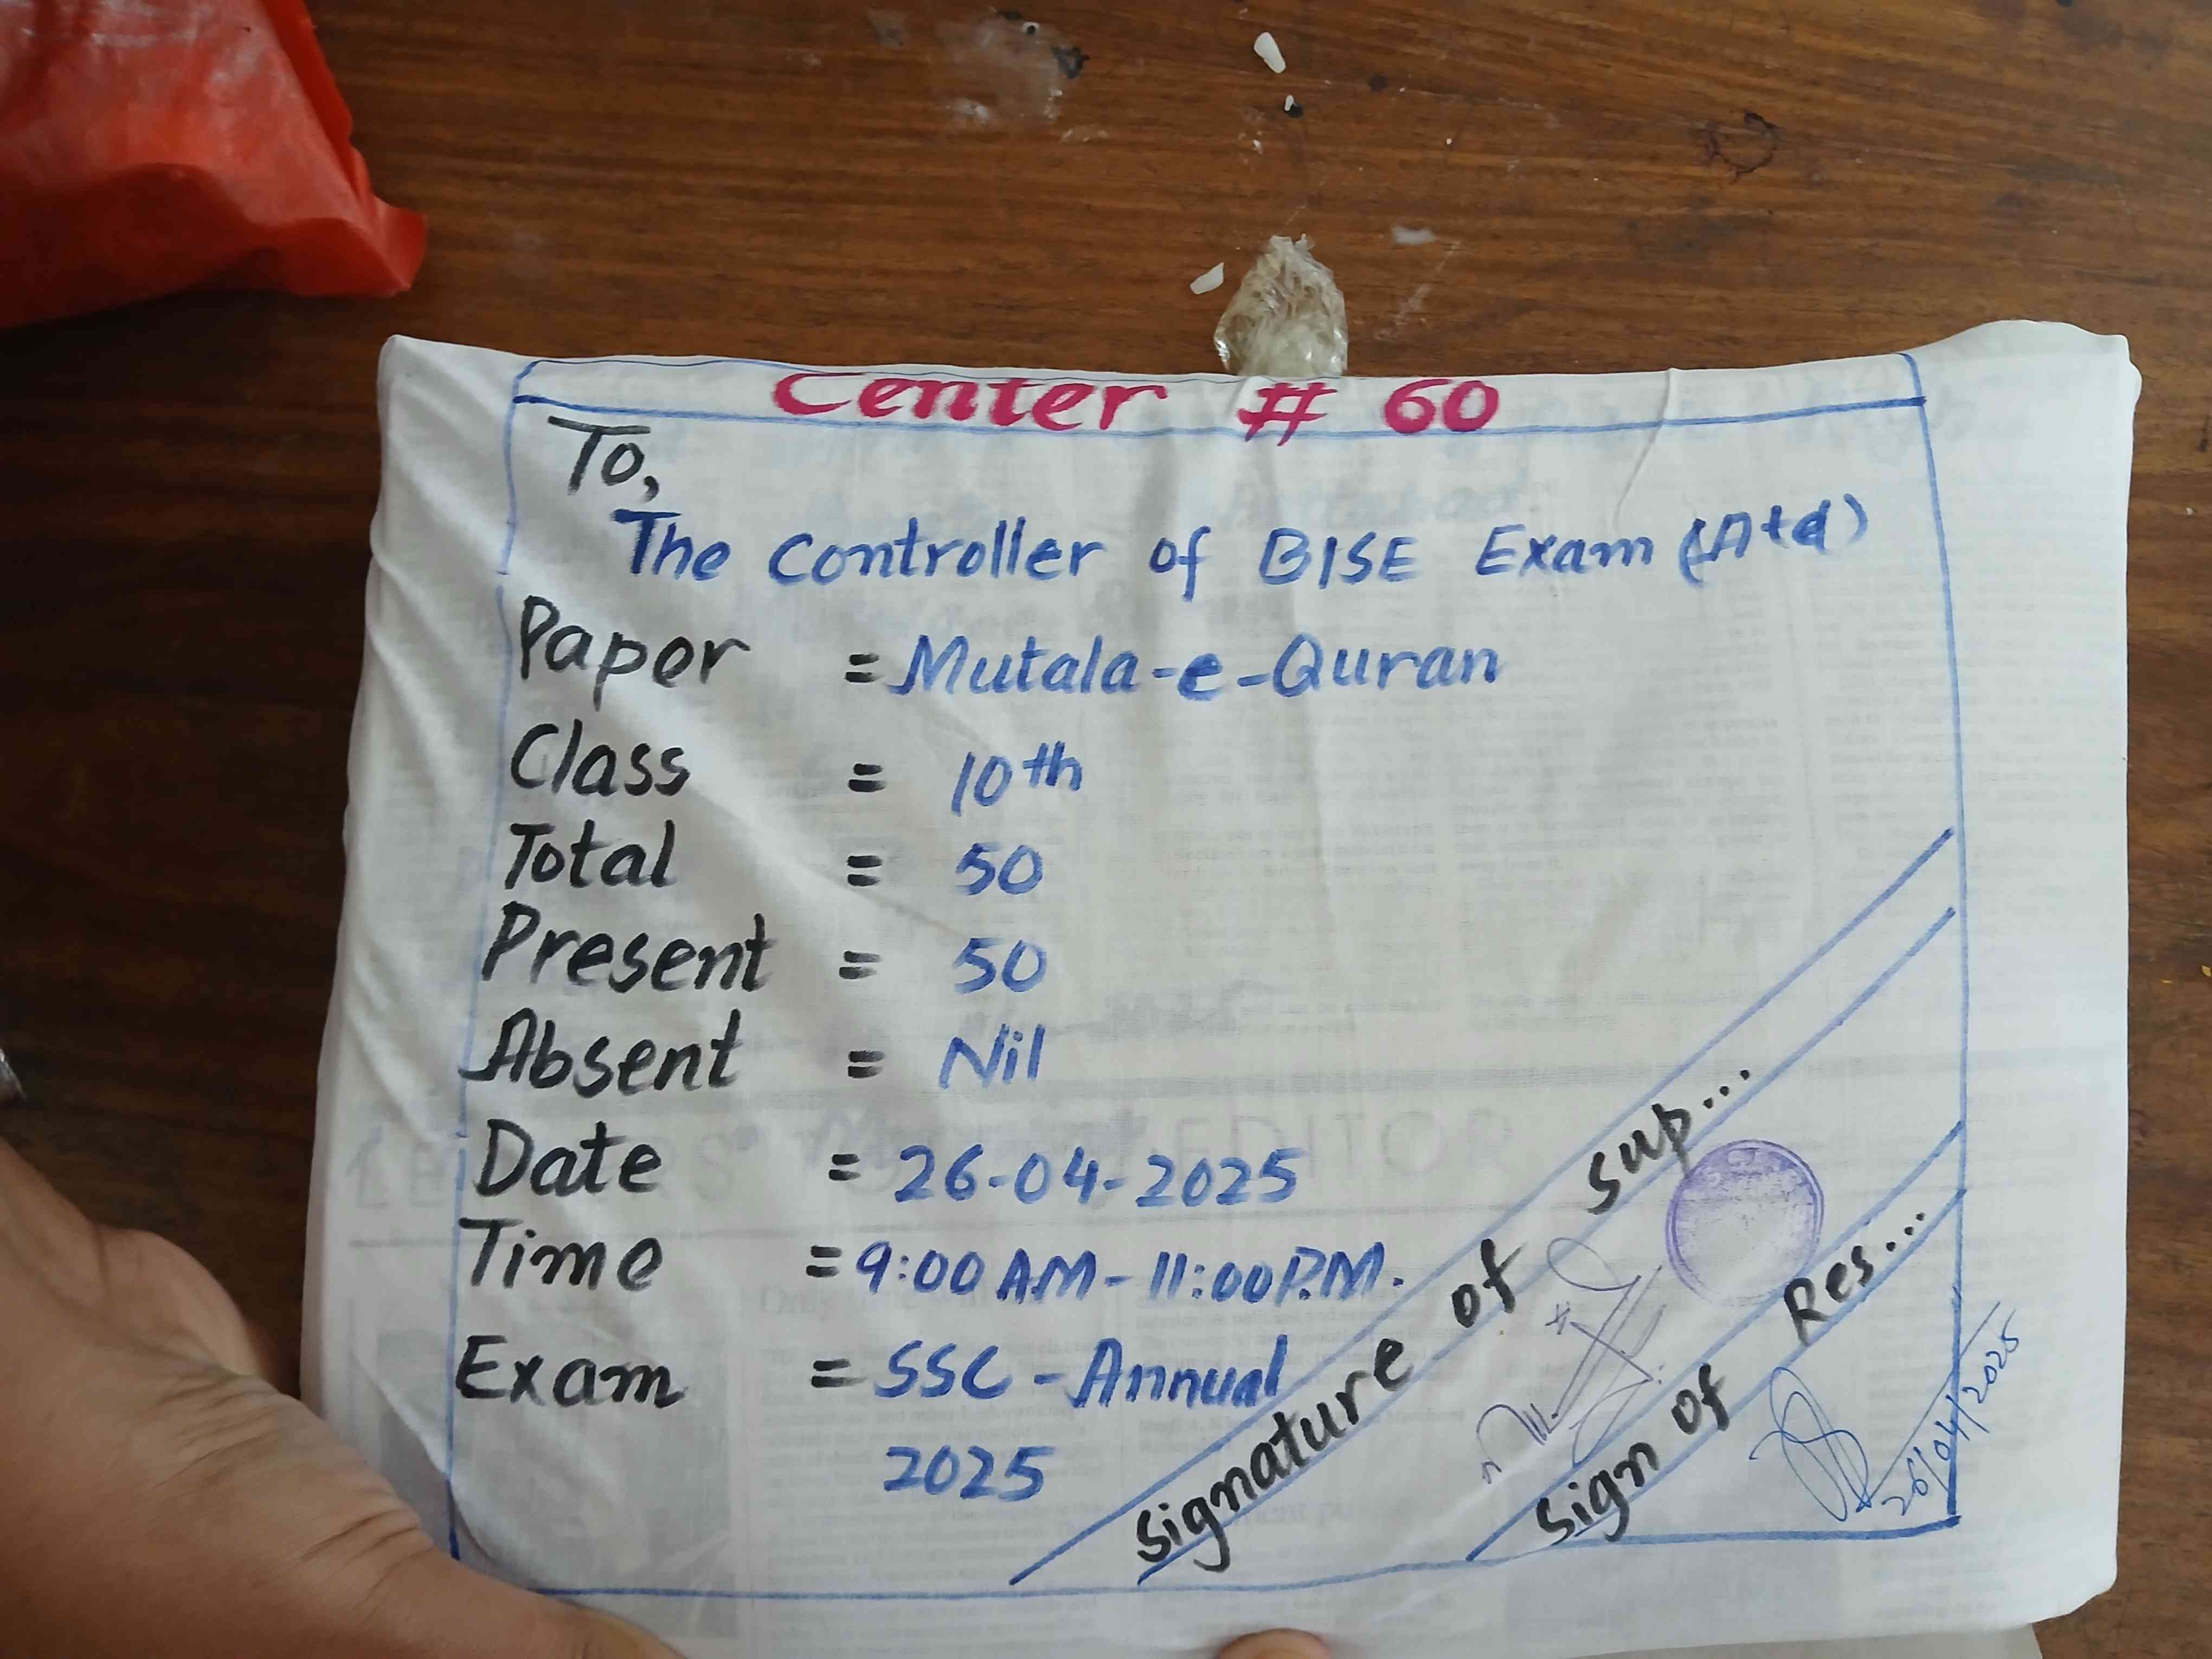 Center # 60
To,
The Controller of BISE Exam (Atd)
Paper = Mutala-e-Quran
Class = 10th
Total = 50
Present = 50
Absent = Nil
Date = 26-04-2025
Time = 9:00 AM - 11:00 P.M.
Exam = SSC - Annual
2025
Signature of Sup...
Sign of Res...
26/04/2025